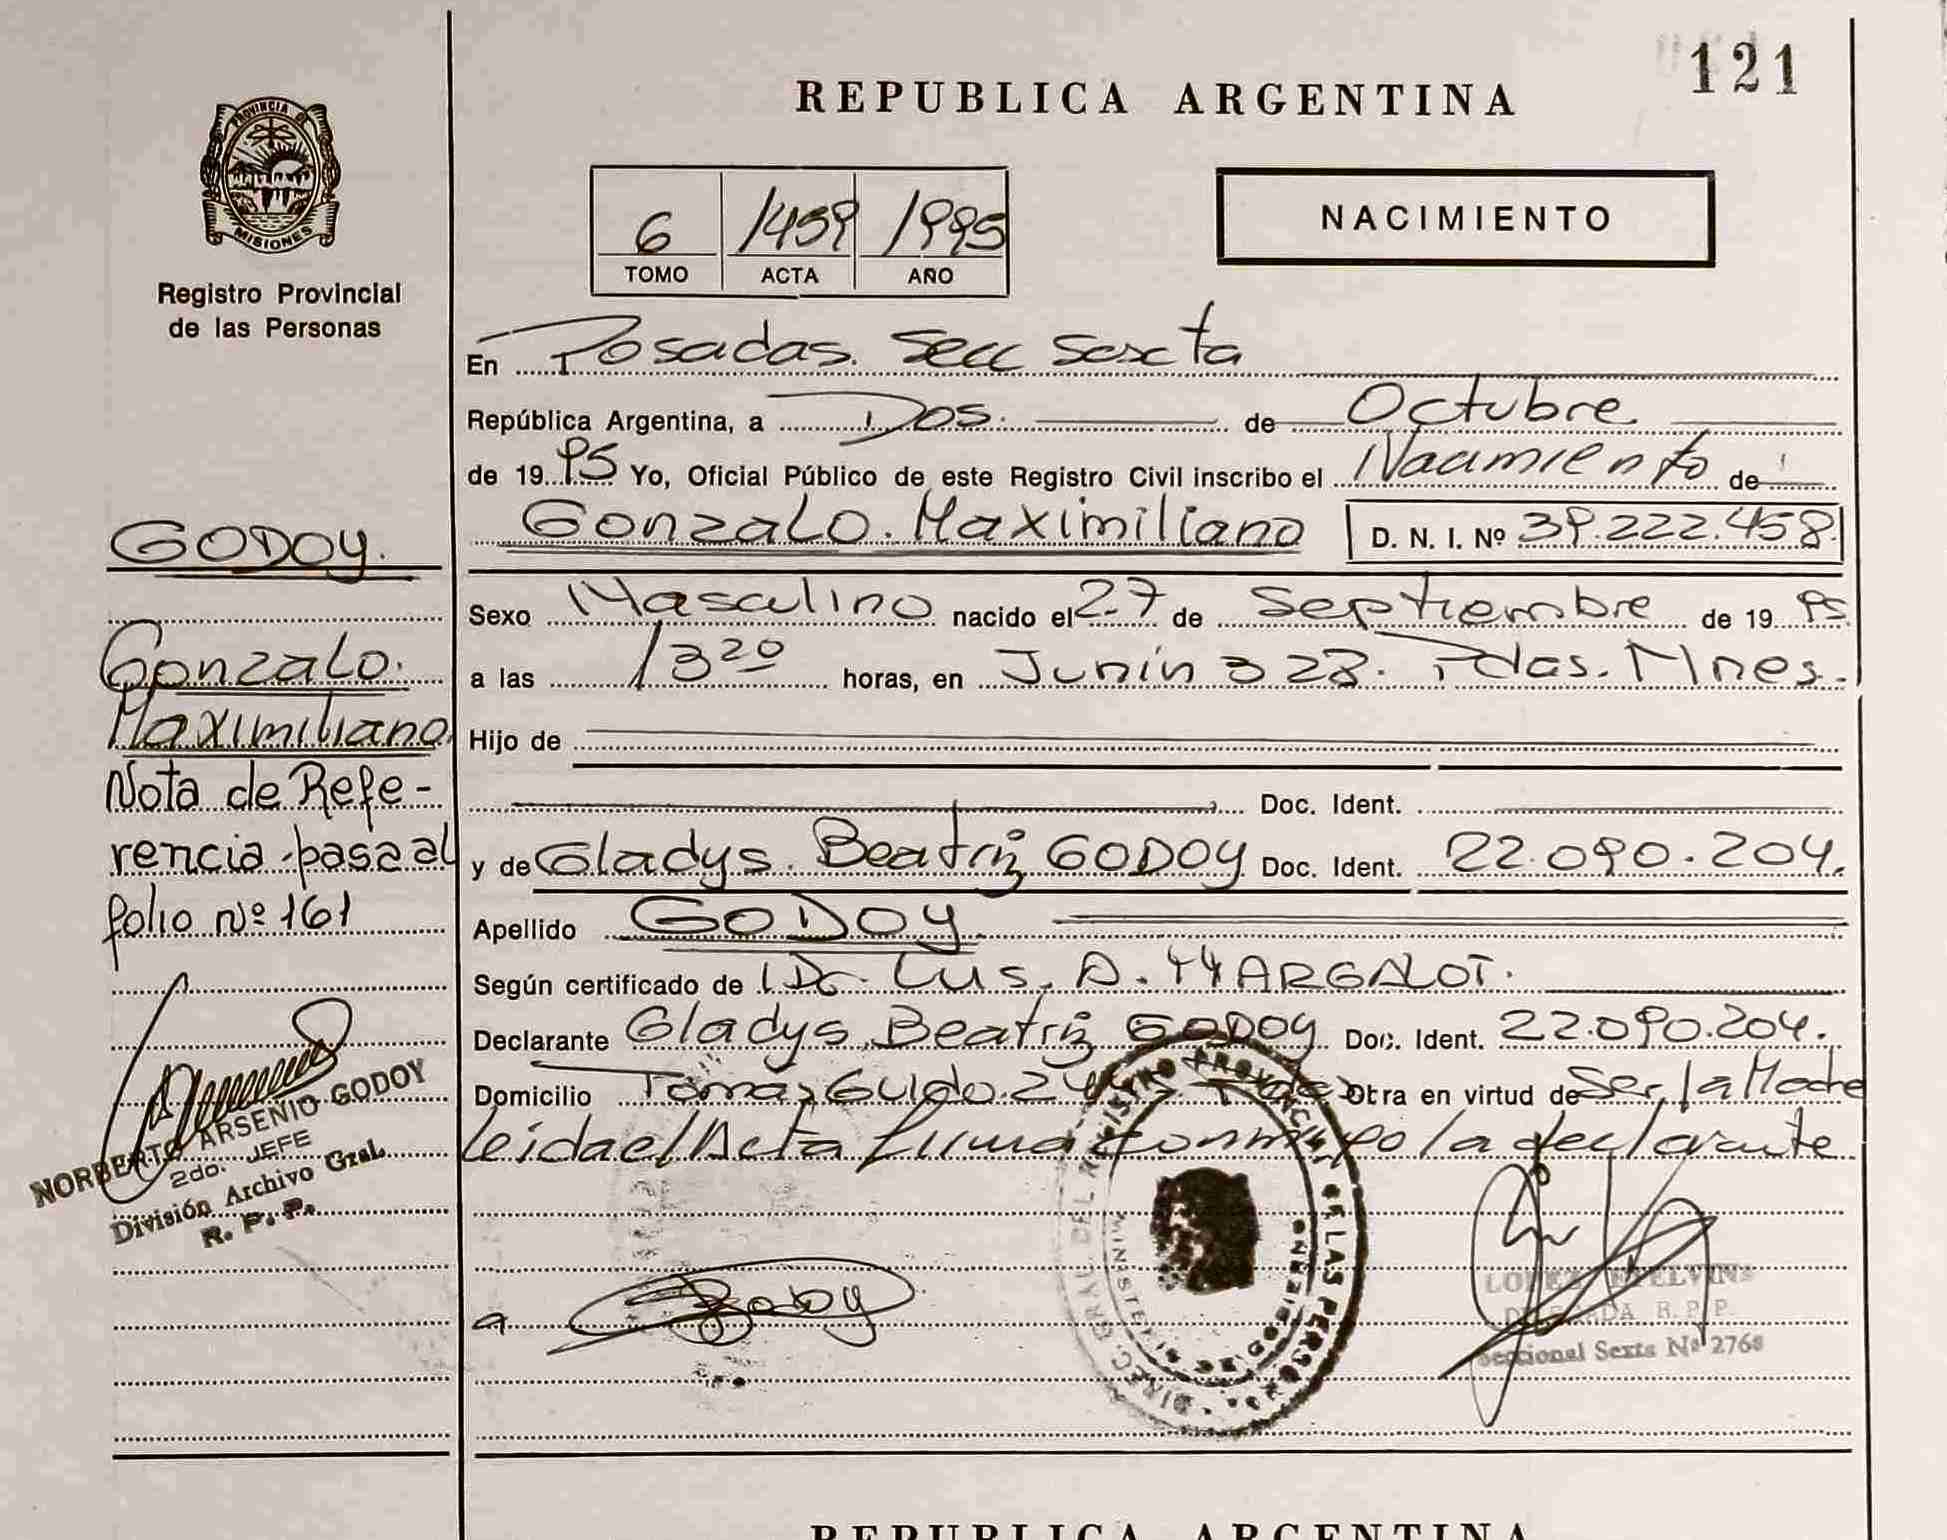 121
REPUBLICA ARGENTINA
PROVINCIA DE
MISIONES
Registro Provincial
de las Personas
6 1459 1995
TOMO ACTA AÑO
NACIMIENTO
En Posadas. Secc Sexta
República Argentina, a Dos. de Octubre
de 1995 Yo, Oficial Público de este Registro Civil inscribo el Nacimiento de
Gonzalo. Maximiliano D. N. I. Nº 39.222.458.
Sexo Masculino nacido el 27 de Septiembre de 1995
a las 13 20 horas, en Junín 328. Pdas. Mnes.
Hijo de
Doc. Ident.
y de Gladys. Beatriz GODOY Doc. Ident. 22.090.204.
Apellido GODOY.
Según certificado de Dr. Luis. A. MARGALOT.
Declarante Gladys Beatriz GODOY Doc. Ident. 22.090.204.
Domicilio Tomás Guido Otra en virtud de Ser la Madre
leida el Acta firma conmigo la declarante
GODOY.
Gonzalo.
Maximiliano.
Nota de Refe-
rencia pasa al
folio nº 161
NORBERTO ARSENIO GODOY
2do. JEFE
División Archivo Gral.
R. P. P.
Godoy
DIREC. GRAL. DEL REGISTRO PROVINCIAL DE LAS PERSONAS
MINISTERIO DE GOBIERNO
LOPEZ ETELVINA
DELEGADA R. P. P.
Seccional Sexta Nº 2768
REPUBLICA ARGENTINA